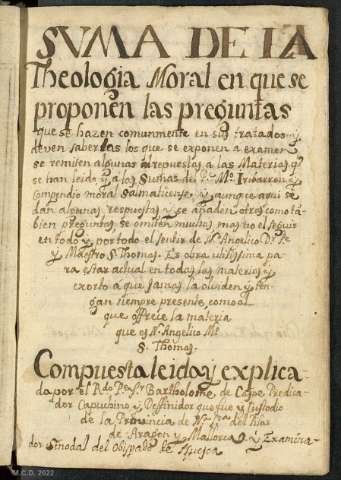 SVMA DE LA
Theologia Moral en que se
proponen las preguntas
que se hazen comunmente en sus tratados, y
deven saberlas los que se exponen a examen
se remiten algunas respuestas a las Materias q
se han leido, y a las Sumas del Pe Mo Iribarren
Compendio moral Salmaticense, y aunque aqui se
dan algunas respuestas y se añaden otras como ta-
bien preguntas se omiten muchas mas no el seguir
en todo y por todo el sentir de N. Angelico Dr Pe
y Maestro S. Thomas. Es obra utilissima pa
ra estar actual en todas las materias y
exorto a que jamas la olviden y ten-
gan siempre presente, como al
que ofrece la materia
que es N. Angelico Mo
S. Thomas.
Compuesta leida y explica
da por el Rdo Pe Fr Bartholome de Caspe Predica-
dor Capuchino y Deffinidor que fue y Custodio
de la Provincia de Na Sra del Pilar
de Aragon y Mallorca y Examina-
dor Sinodal del Obispado de Huesca
M.C.D. 2022